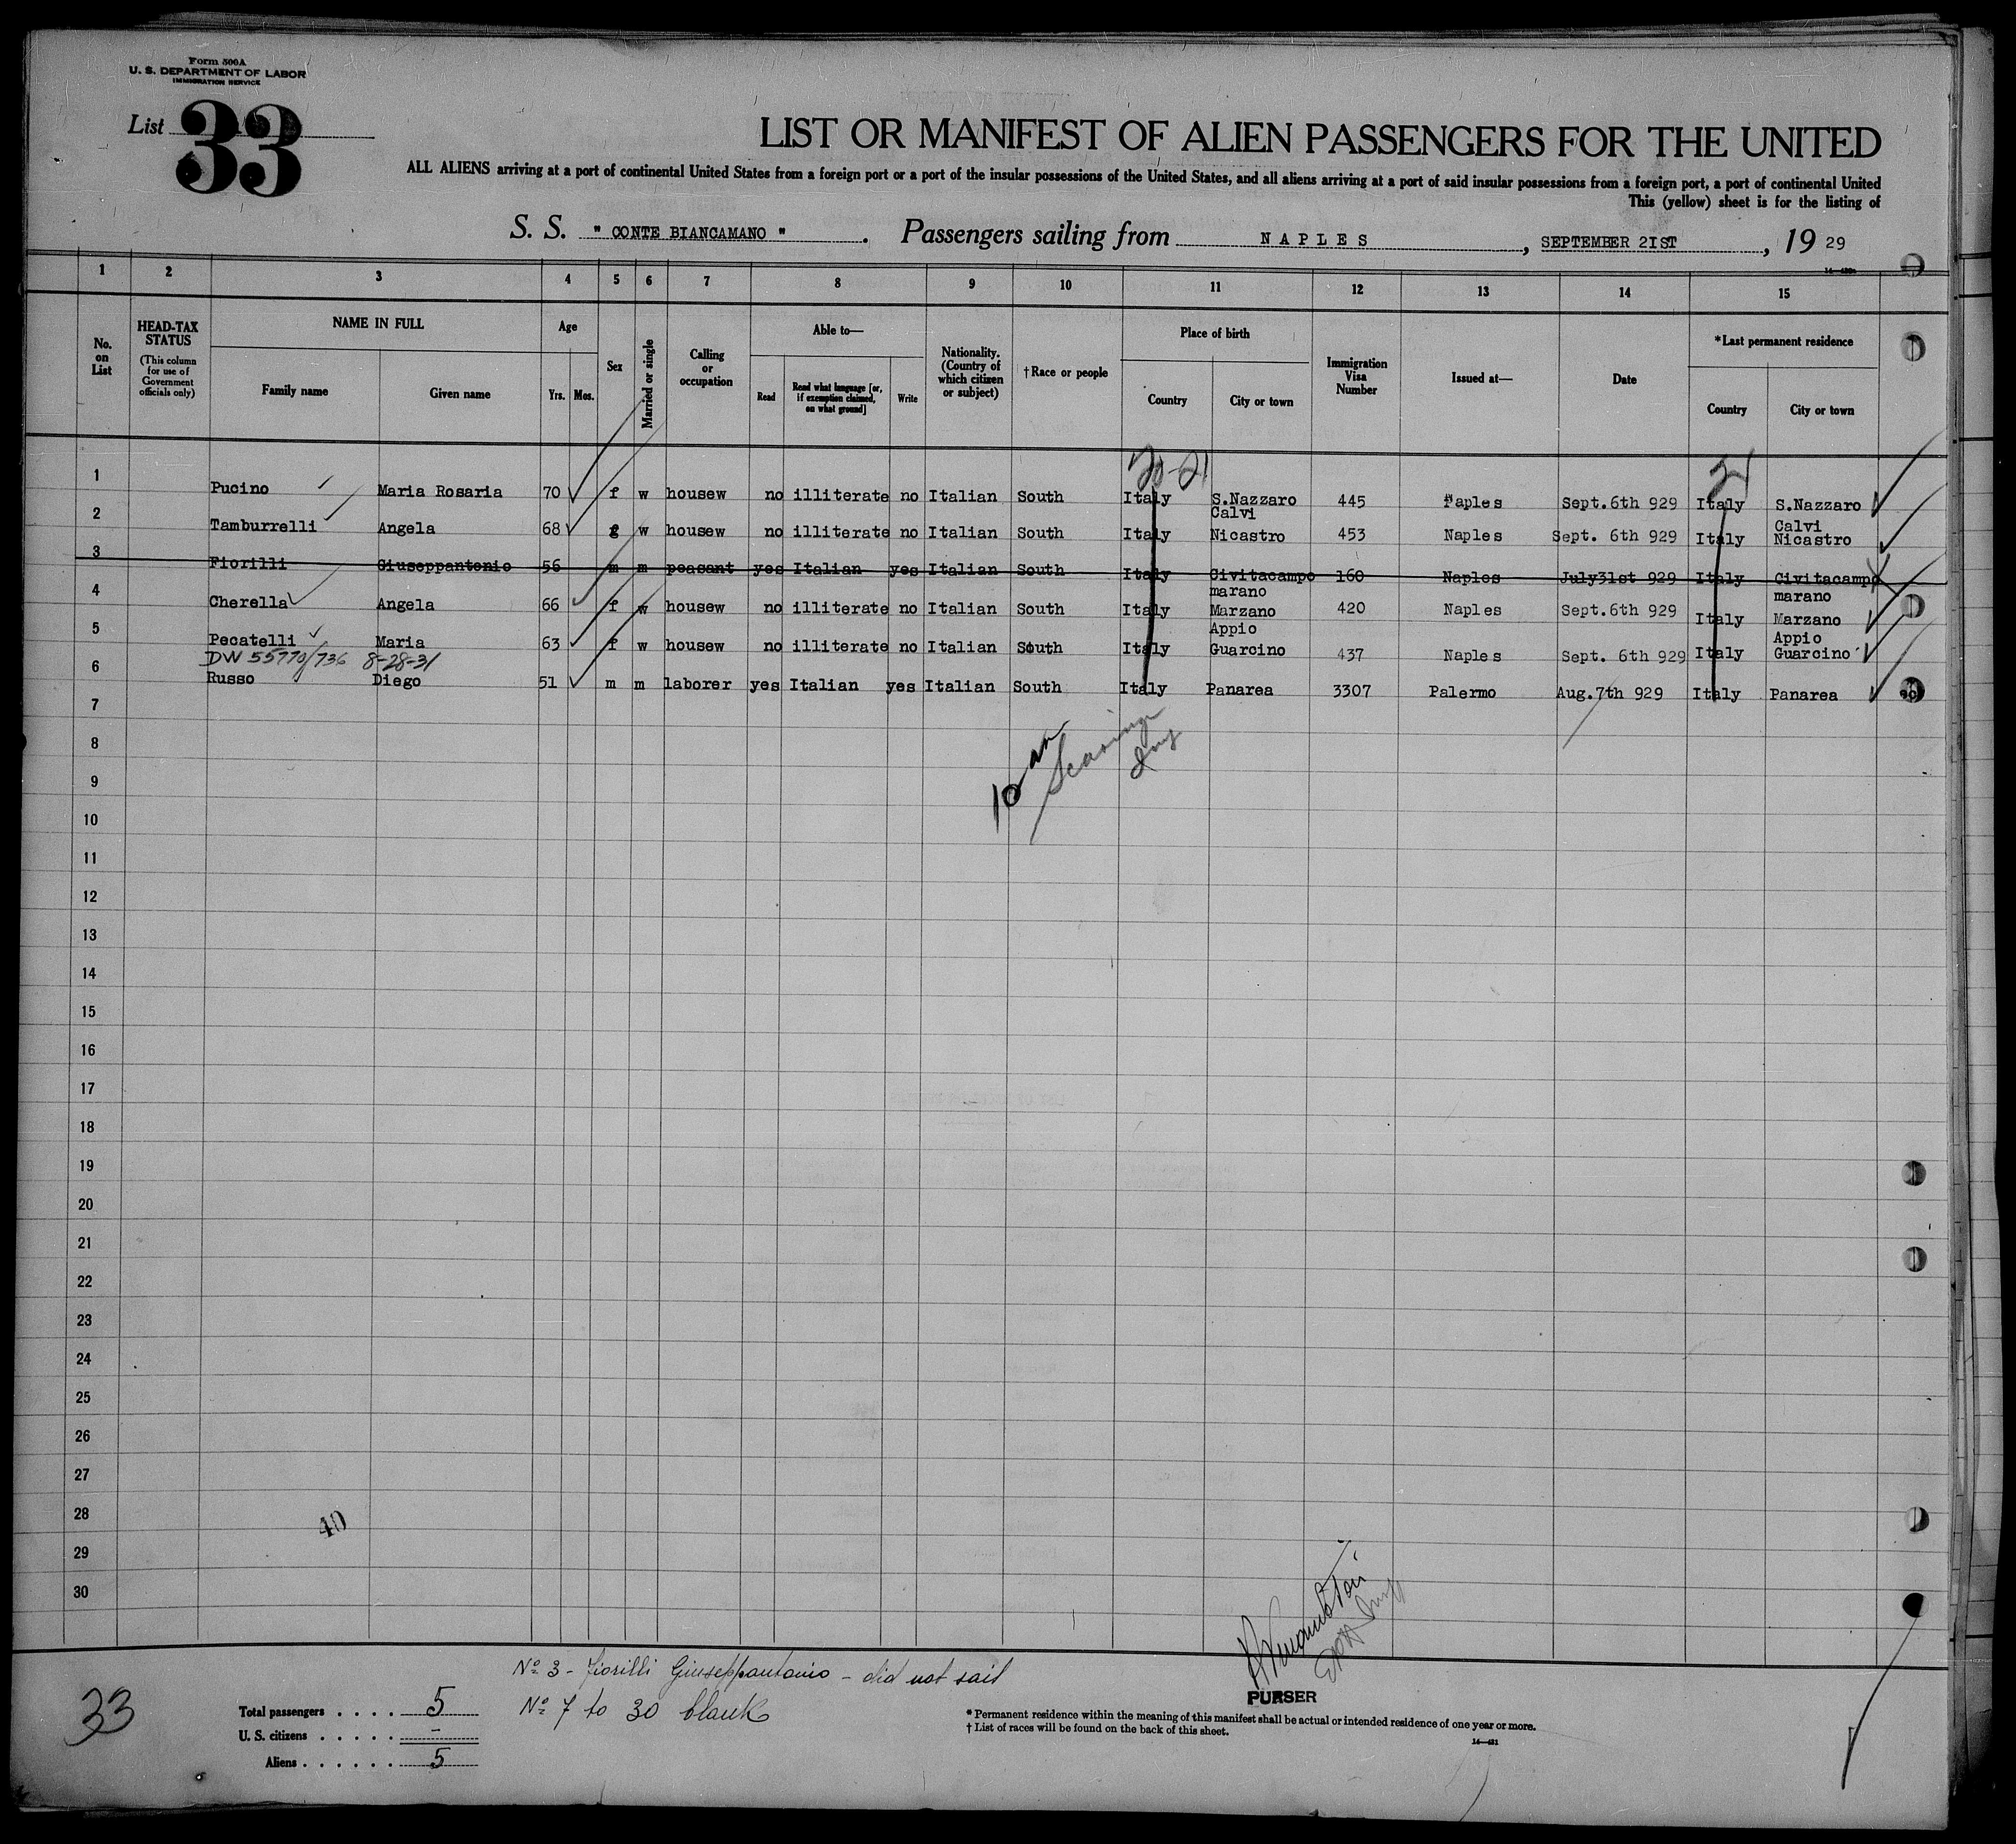 Form 500A
U. S. DEPARTMENT OF LABOR
IMMIGRATION SERVICE
List 33
LIST OR MANIFEST OF ALIEN PASSENGERS FOR THE UNITED
ALL ALIENS arriving at a port of continental United States from a foreign port or a port of the insular possessions of the United States, and all aliens arriving at a port of said insular possessions from a foreign port, a port of continental United
This (yellow) sheet is for the listing of
S. S. " CONTE BIANCAMANO " . Passengers sailing from NAPLES , SEPTEMBER 21ST , 19 29
1 2 3 4 5 6 7 8 9 10 11 12 13 14 15
No. on List
HEAD-TAX STATUS
(This column for use of Government officials only)
NAME IN FULL
Family name
Given name
Age
Yrs. Mos.
Sex
Married or single
Calling or occupation
Able to—
Read
Read what language [or, if exemption claimed, on what ground]
Write
Nationality. (Country of which citizen or subject)
†Race or people
Place of birth
Country
City or town
Immigration Visa Number
Issued at—
Date
*Last permanent residence
Country
City or town
20-21
21
1 Pucino Maria Rosaria 70 f w housew no illiterate no Italian South Italy S.Nazzaro Calvi 445 Naples Sept.6th 929 Italy S.Nazzaro Calvi
2 Tamburrelli Angela 68 f w housew no illiterate no Italian South Italy Nicastro 453 Naples Sept. 6th 929 Italy Nicastro
3 Fiorilli Giuseppantonio 56 m m peasant yes Italian yes Italian South Italy Civitacampo marano 160 Naples July31st 929 Italy Civitacampo marano
4 Cherella Angela 66 f w housew no illiterate no Italian South Italy Marzano Appio 420 Naples Sept.6th 929 Italy Marzano Appio
5 Pecatelli Maria 63 f w housew no illiterate no Italian South Italy Guarcino 437 Naples Sept. 6th 929 Italy Guarcino
DW 55770/736 8-28-31
6 Russo Diego 51 m m laborer yes Italian yes Italian South Italy Panarea 3307 Palermo Aug.7th 929 Italy Panarea
7
8
9
10
11
12
13
14
15
16
17
18
19
20
21
22
23
24
25
26
27
28
29
30
40
No 3 - Fiorilli Giuseppantonio - did not sail
No 7 to 30 blank
33
Total passengers . . . . 5
U. S. citizens . . . . . -
Aliens . . . . . . 5
PURSER
* Permanent residence within the meaning of this manifest shall be actual or intended residence of one year or more.
† List of races will be found on the back of this sheet.
14—431